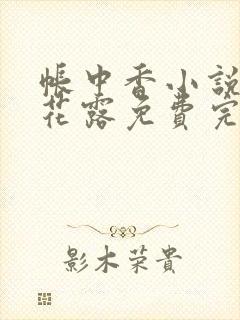 帳中香小說
花露免費完
影木荣貴